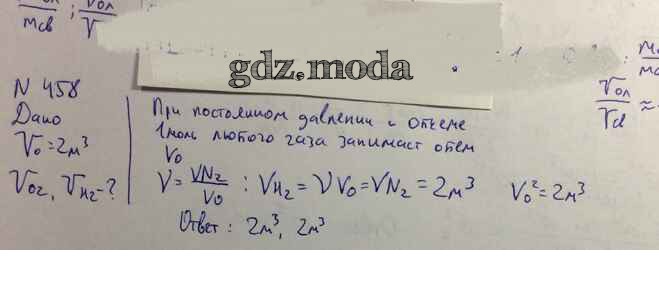 mсв ; Vол
V
gdz.moda
N 458
Дано
V₀ = 2м³
V₀₂, Vн₂ - ?
При постоянном давлении и объеме
1 моль любого газа занимает объем
V₀
ν = VN₂/V₀ : VH₂ = νV₀ = VN₂ = 2м³ V₀² = 2м³
Ответ: 2м³, 2м³
Vол/Vсв ≈